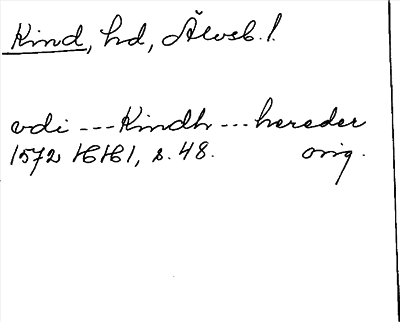 Kind, hd, Älvsb. l.
vdi --- Kindh --- hereder
1572 HH1, s. 48. orig.